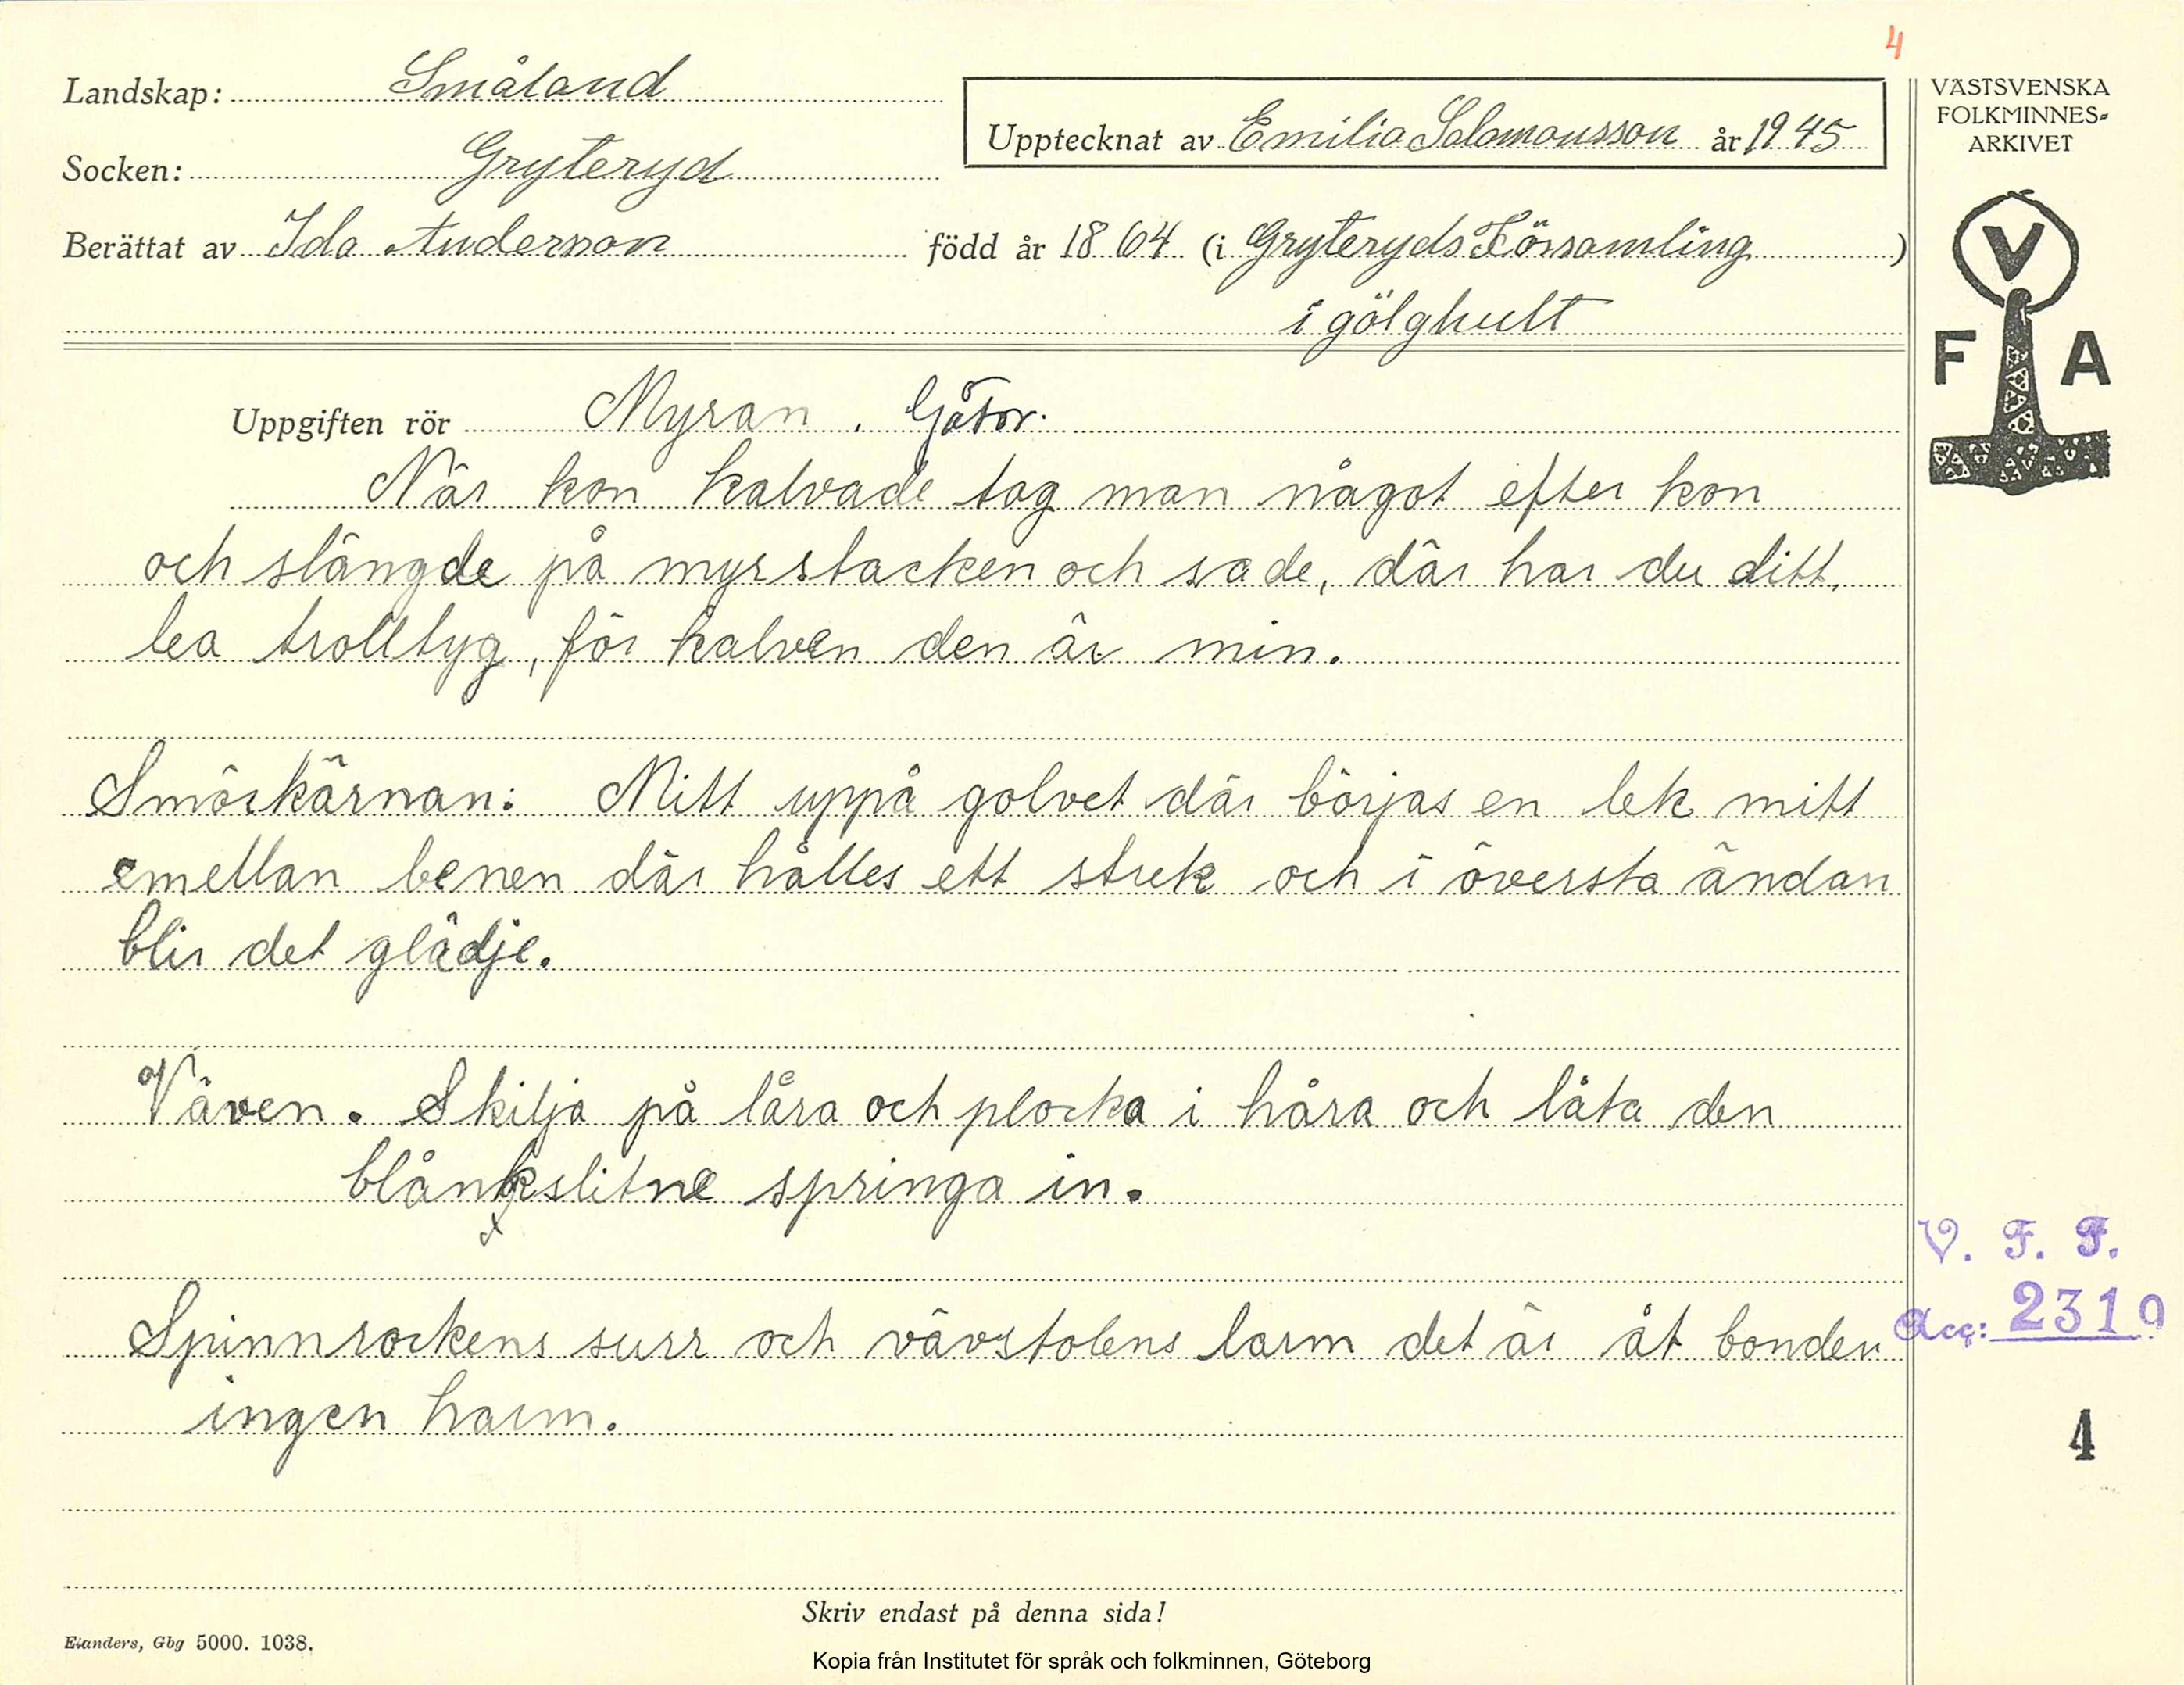 4
Landskap: Småland
Socken: Gryteryd
Upptecknat av Emilia Salomonsson år 1945
Berättat av Ida Anderson född år 1864 (i Gryteryds Församling)
i gölghult
Uppgiften rör Myran. Gåtor.
När kon kalvade tog man något efter kon
och slängde på myrstacken och sade, där har du ditt,
lea trolltyg, för kalven den är min.
Smörkärnan: Mitt uppå golvet där börjas en lek mitt
emellan benen där hålles ett strek och i översta ändan
blir det glädje.
Väven. Skilja på låra och plocka i håra och låta den
blånkslitne springa in.
x
Spinnrockens surr och vävstolens larm det är åt bonden
ingen harm.
Skriv endast på denna sida!
Elanders, Gbg 5000. 1038.
Kopia från Institutet för språk och folkminnen, Göteborg
VÄSTSVENSKA
FOLKMINNES-
ARKIVET
V
F A
V. F. F.
Acc: 2310
4